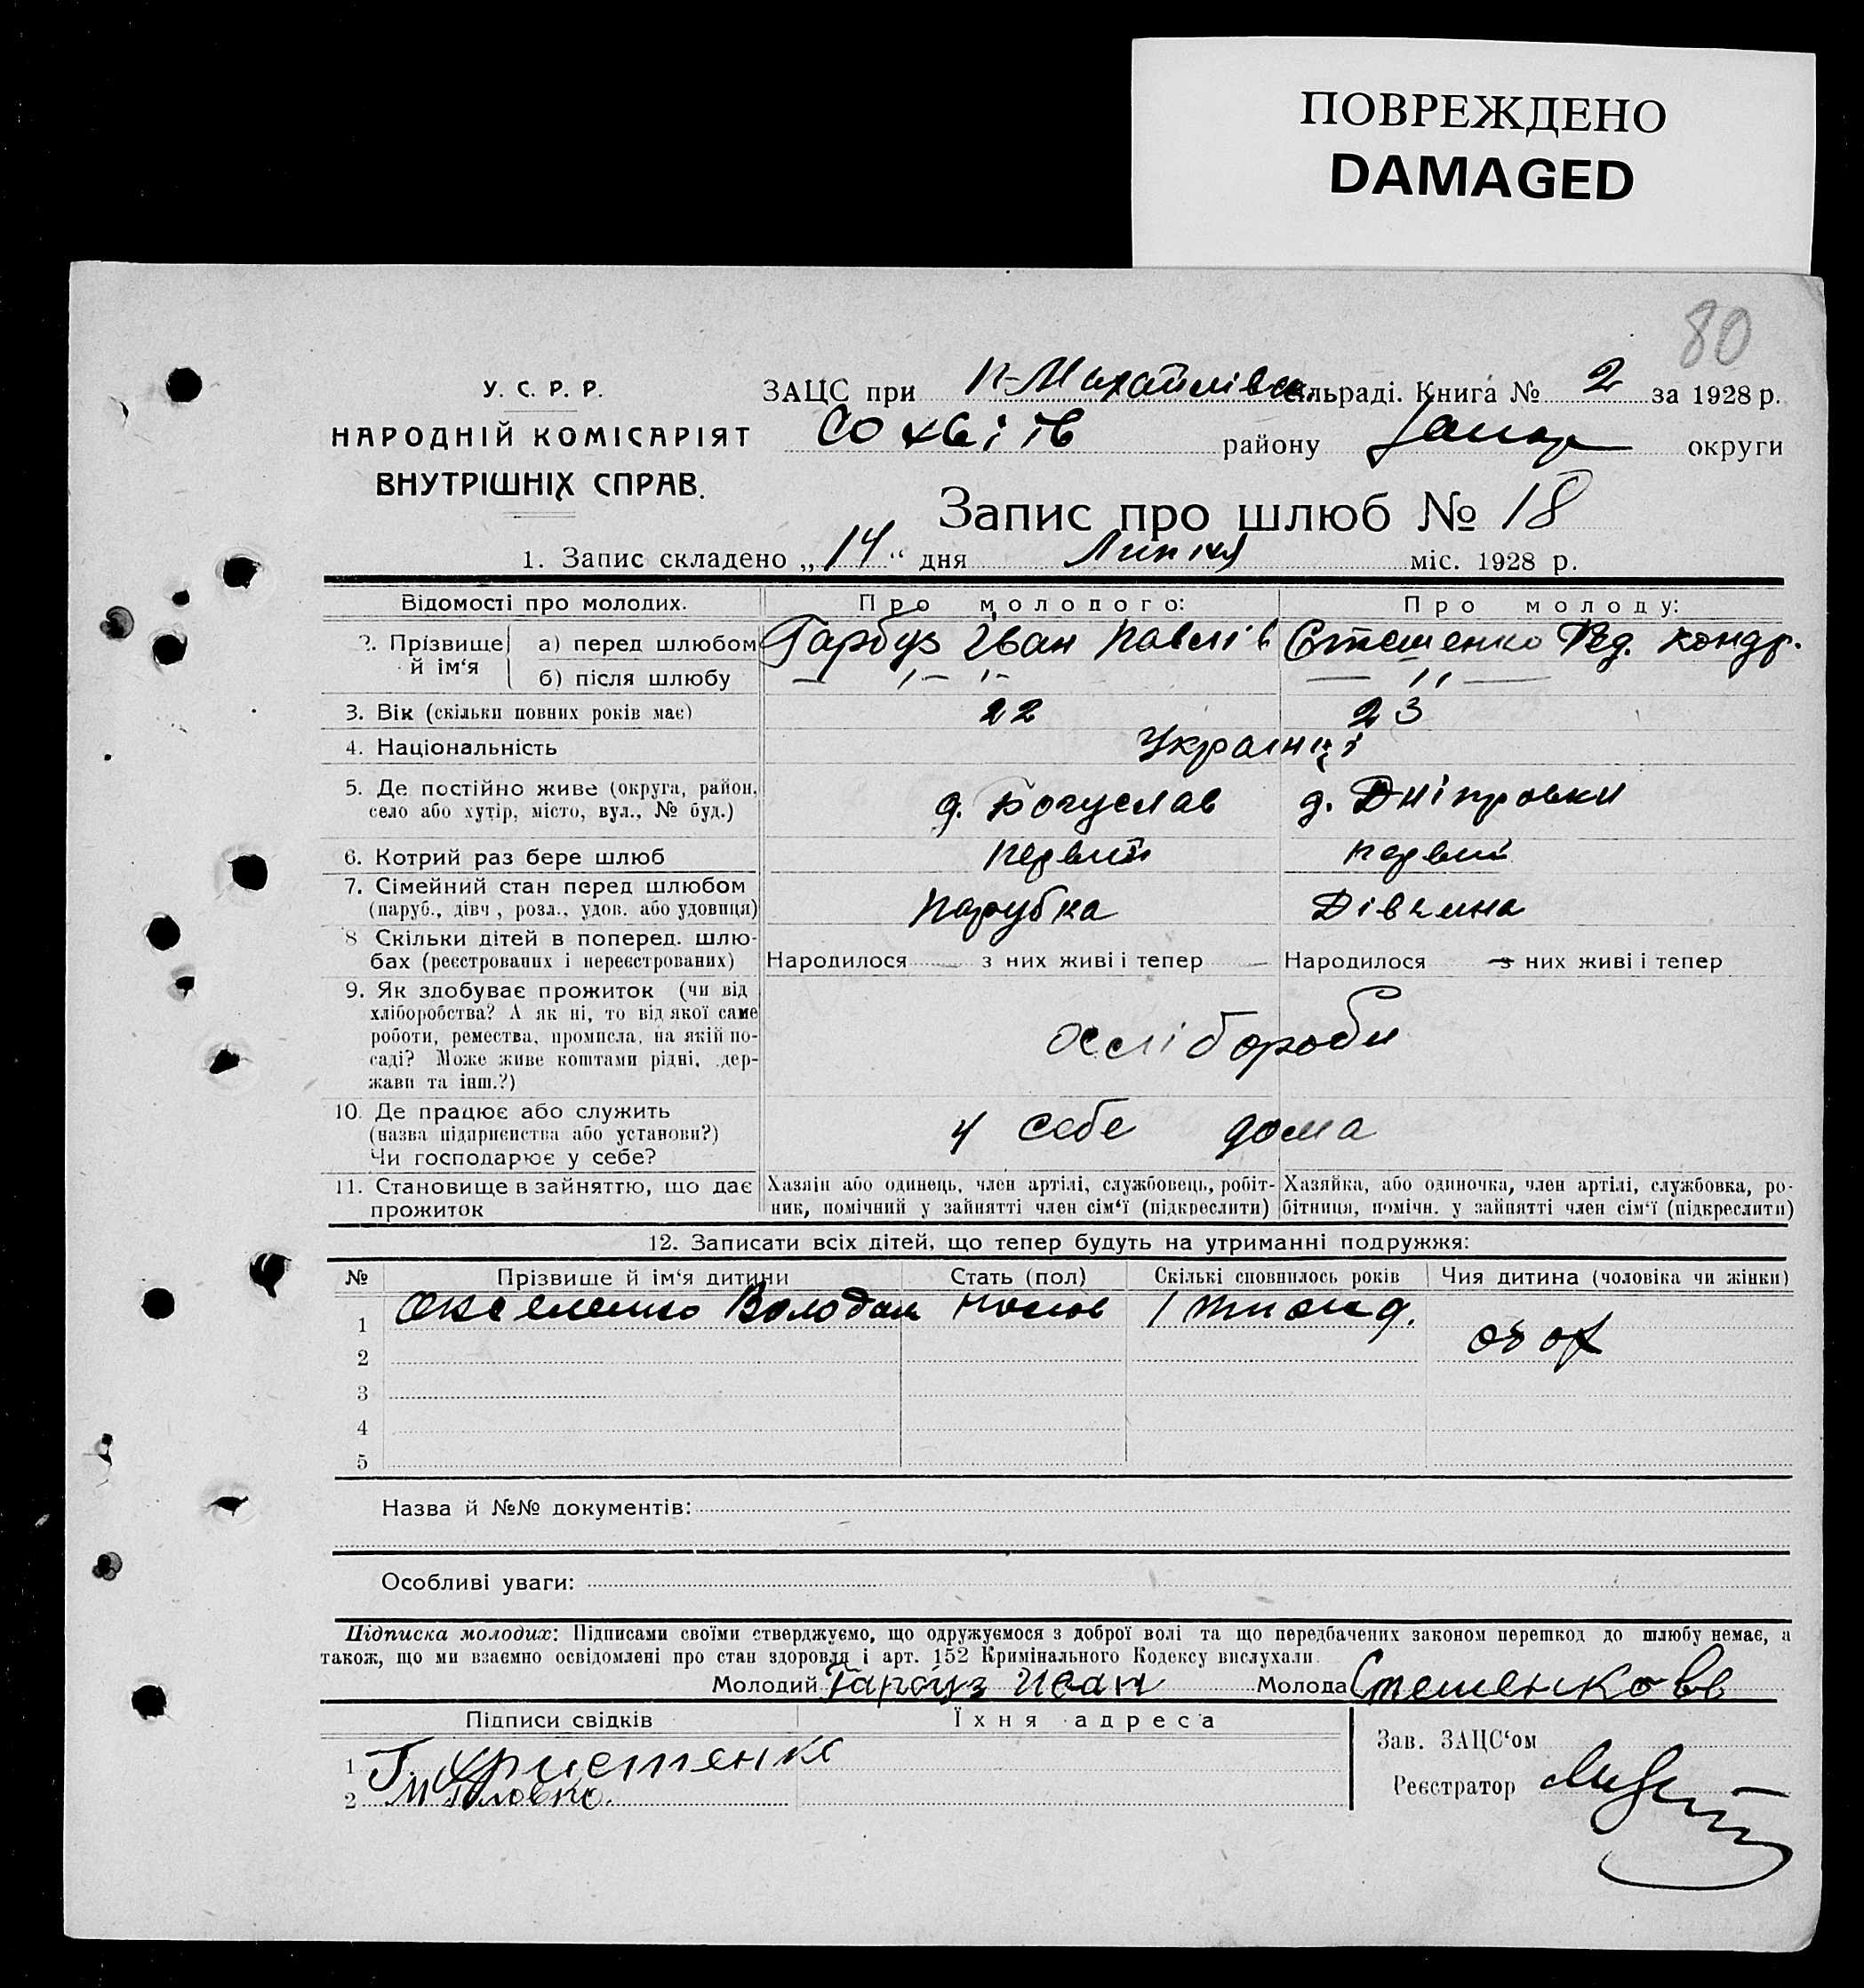 ПОВРЕЖДЕНО
DAMAGED
80
У. С. Р. Р.
НАРОДНІЙ КОМІСАРІЯТ
ВНУТРІШНІХ СПРАВ.
ЗАЦС при Н-Михайлівск. сільраді. Книга № 2 за 1928 р.
району округи
Запис про шлюб № 18
1. Запис складено „14“ дня Липня міс. 1928 р.
Відомості про молодих. Про молодого: Про молоду:
2. Прізвище й ім‘я а) перед шлюбом Гарбуз Іван Павлів Стешенко Фед. Кондр.
б) після шлюбу — " — — " —
3. Вік (скільки повних років має) 22 23
4. Національність Українці
5. Де постійно живе (округа, район, село або хутір, місто, вул., № буд.) д. Богуслав д. Дніпровки
6. Котрий раз бере шлюб первий первий
7. Сімейний стан перед шлюбом (паруб., дівч., розл., удов. або удовиця) Парубка Дівчина
8 Скільки дітей в поперед. шлюбах (реєстрованих і нереєстрованих) Народилося — з них живі і тепер — Народилося — з них живі і тепер
9. Як здобуває прожиток (чи від
хліборобства? А як ні, то від якої саме
роботи, ремества, промисла, на якій по-
саді? Може живе коштами рідні, дер-
жави та інш.?) хлібороби
10. Де працює або служить
(назва підприємства або установи?)
Чи господарює у себе? у себе дома
11. Становище в зайняттю, що дає прожиток
Хазяїн або одинець, член артілі, службовець, робіт-
ник, помічний у зайнятті член сім‘ї (підкреслити)
Хазяйка, або одиночка, член артілі, службовка, ро-
бітниця, помічн. у зайнятті член сім‘ї (підкреслити)
12. Записати всіх дітей, що тепер будуть на утриманні подружжя:
№ Прізвище й ім‘я дитини Стать (пол) Скількі сповнилось років Чия дитина (чоловіка чи жінки)
1 Володим 1
2
3
4
5
Назва й №№ документів:
Особливі уваги:
Підписка молодих: Підписами своїми стверджуємо, що одружуємося з доброї волі та що передбачених законом перешкод до шлюбу немає, а
також, що ми взаємно освідомлені про стан здоровля і арт. 152 Кримінального Кодексу вислухали.
Молодий Гарбуз Иван Молода Стешенкова
Підписи свідків Їхня адреса
1 Г. Христенко
2 М Головко.
Зав. ЗАЦС‘ом
Реєстратор